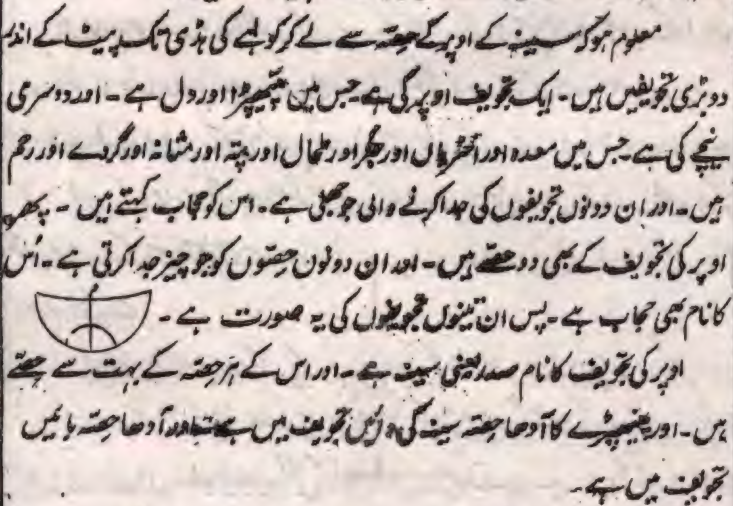 معلوم ہو کہ سینہ کے اوپر کے حصّہ سے لے کر کولھے کی ہڈی تک پیٹ کے اندر
دو بڑی تجویفیں ہیں۔ ایک تجویف اوپر کی ہے جس میں پھیپھڑا اور دل ہے۔ اور دوسری
نیچے کی ہے جس میں معدہ اور انتڑیاں اور جگر اور طحال اور پتہ اور مثانہ اور گردے اور رحم
ہیں۔ اور ان دونوں تجویفوں کی جدا کرنے والی جو جھلی ہے۔ اس کو حجاب کہتے ہیں۔ پھر
اوپر کی تجویف کے بھی دو حصّے ہیں۔ اور ان دونوں حصّوں کو جو چیز جدا کرتی ہے۔ اُس
کا نام بھی حجاب ہے۔ پس ان تینوں تجویفوں کی یہ صورت ہے۔
اوپر کی تجویف کا نام صدر یعنی سینہ ہے۔ اور اس کے ہر حصّہ کے بہت سے حصّے
ہیں۔ اور پھیپھڑے کا آدھا حصّہ سینہ کی دائیں تجویف میں ہے اور آدھا حصّہ بائیں
تجویف میں ہے۔